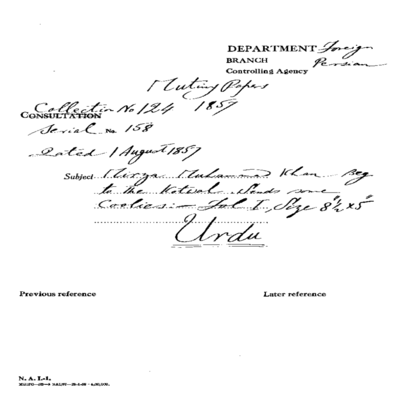 DEPARTMENT Foreign
BRANCH Persian
Controlling Agency
Mutiny Papers
Collection No 124 1857
CONSULTATION
Serial No. 158
Dated 1 August 1857
Subject Mirza Muhammad Khan Beg
to the Kotwal. Sends some
Coolies:— Fol I, Size 8½"x5"
Urdu
Previous reference Later reference
N. A. I.-1.